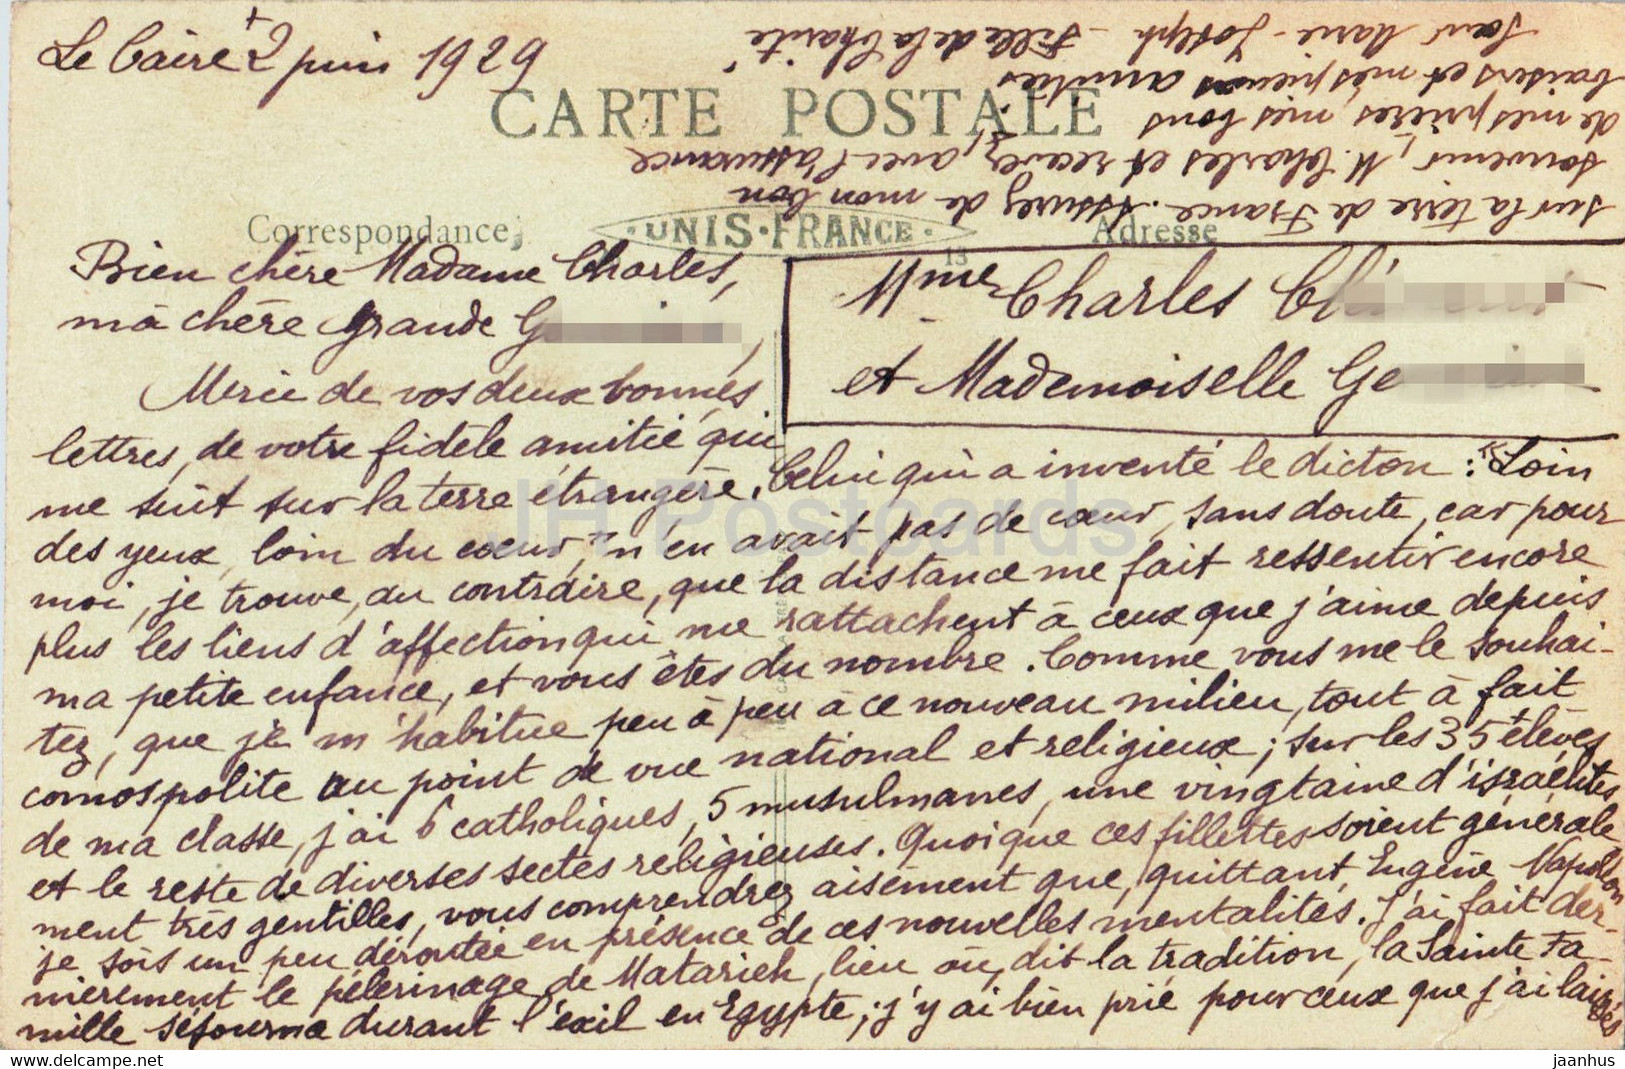 +
Le Caire 2 juin 1929
CARTE POSTALE
Correspondance
UNIS-FRANCE
13
Adresse
Bien chère Madame Charles,
ma chère grande G
Mme Charles Cl
et Mademoiselle Ge
Merci de vos deux bonnes
lettres, de votre fidèle amitié qui
me suit sur la terre étrangère. Celui qui a inventé le dicton : "Loin
des yeux, loin du cœur," n'en avait pas de cœur, sans doute, car pour
moi, je trouve, au contraire, que la distance me fait ressentir encore
plus les liens d'affection qui me rattachent à ceux que j'aime depuis
ma petite enfance, et vous êtes du nombre. Comme vous me le souhai-
tez, que je m'habitue peu à peu à ce nouveau milieu, tout à fait
comospolite au point de vue national et religieux ; sur les 35 élèves
de ma classe, j'ai 6 catholiques, 5 musulmanes, une vingtaine d'israélites
et le reste de diverses sectes religieuses. Quoique ces fillettes soient générale
ment très gentilles, vous comprendrez aisément que, quittant Eugène Napoléon
je sois un peu déroutée en présence de ces nouvelles mentalités. J'ai fait der-
nièrement le pèlerinage de Matarieh, lieu où, dit la tradition, la Sainte Fa-
mille séjourna durant l'exil en Egypte ; j'y ai bien prié pour ceux que j'ai laissés
sur la terre de France. Assurez de mon bon
souvenir, M. Charles et recevez, avec l'assurance
de mes prières, mes bons
baisers et mes pieuses amitiés
Sœur Marie-Joseph - Fille de la Charité
JH Postcards
www.delcampe.net
jaanhus